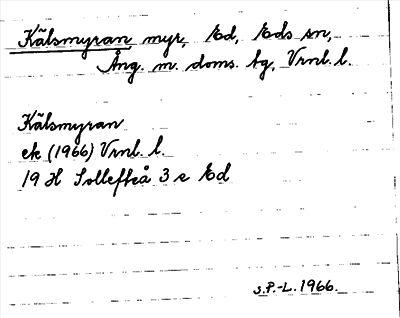 Kälsmyran myr, Ed, Eds sn,
Ång. m. doms. bg, Vrnl. l.
Kälsmyran
ek (1966) Vrnl. l.
19 H Sollefteå 3 e Ed
S.P.-L. 1966.